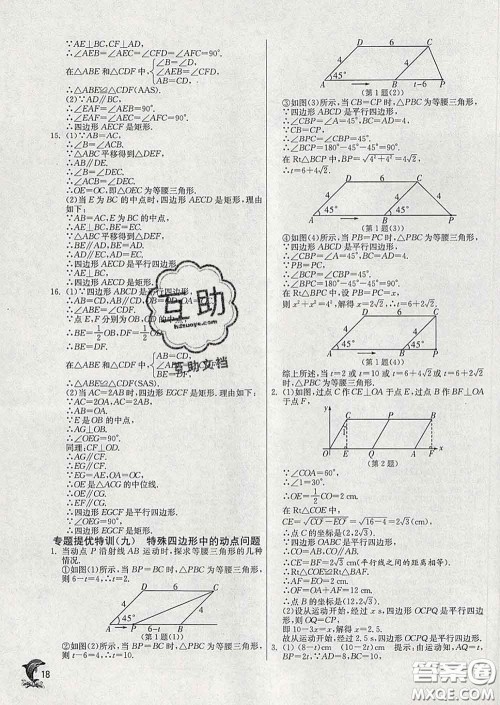 ∵AE⊥BC,CF⊥AD,
∴∠AEB=∠AEC=∠AFC=90°.
在△ABE和△CDF中,
∠B=∠D,
AB=CD,
∴△ABE≌△CDF(AAS).
(2)∵AD∥BC,
∴∠EAF=∠AEB=90°.
∴∠EAF=∠AEC=∠AFC=90°.
∴四边形AECF是矩形.
15. (1)∵AB=AC,
∴∠B=∠ACB.
∵△ABC平移得到△DEF,
∴AB∥DE.
∴∠B=∠DEC.
∴∠ACB=∠DEC.
∴OE=OC,即△OEC为等腰三角形.
(2)当E为BC的中点时,四边形AECD是矩形,理由
如下:
∵AB=AC,E为BC的中点,
∴AE⊥BC,BE=EC.
∵△ABC平移得到△DEF,
∴BE∥AD,BE=AD.
∴AD∥EC,AD=EC.
∴四边形AECD是平行四边形.
∵AE⊥BC,
∴四边形AECD是矩形.
16. (1)∵四边形ABCD是平行四边形,
∴∠ABE=∠CDF.
∵点E,F分别为OB,OD的中点,
∴BE=1/2 OB,DF=1/2 OD.
∴BE=DF.
在△ABE和△CDF中,
AB=CD,
∠ABE=∠CDF,
BE=DF,
∴△ABE≌△CDF(SAS).
(2)当AC=2AB时,四边形EGCF是矩形.理由如下:
∵AC=2OA,AC=2AB,
∴AB=OA.
∵E是OB的中点,
∴AG⊥OB.
∴∠OEG=90°.
同理:CF⊥OD.
∴AG∥CF.
∴EG∥CF.
∵EG=AE,OA=OC,
∴OE是△ACG的中位线.
∴OE∥CG.
∴EF∥CG.
∴四边形EGCF是平行四边形.
∵∠OEG=90°,
∴四边形EGCF是矩形.
专题提优特训(九) 特殊四边形中的动点问题
1. 当动点P沿射线AB运动时,探求等腰三角形的几种
情况.
①如图(1)所示,当BC=BP时,△PBC为等腰三角形,
则6-t=4,∴t=2.
D 6 C
4 4
45°
A P 6-t B
(第1题(1))
②如图(2)所示,当BC=BP时,△PBC为等腰三角形,
则t-6=4,∴t=10.
D 6 C
4 4
45°
A B t-6 P
(第1题(2))
③如图(3)所示,当CB=CP时,△PBC为等腰三角形,
∵四边形ABCD是平行四边形,
∴∠CBP=∠A=45°,BC=BP=4.
∴∠BCP=180°-45°-45°=90°.
在Rt△BCP中,BP=√(4²+4²)=4√2.
∴t=6+4√2.
D 6 C
4 4
45° 45°
A B P
(第1题(3))
④如图(4)所示,当PB=PC时,△PBC为等腰三角形,
∵四边形ABCD是平行四边形,
∴∠CBP=∠A=45°.
∴∠BPC=180°-45°-45°=90°.
在Rt△BPC中,设PB=PC=x,
则x²+x²=4²,解得x=2√2,∴t=6+2√2.
D 6 C
4 4
45° 45°
A B P
(第1题(4))
综上所述,当t=2或t=10或t=6+4√2或t=6+2√2
时,△PBC为等腰三角形.
2. (1)如图,过点C作CE⊥OA于点E,过点B作BF⊥OA于
点F,
y C P B
O E Q A F x
(第2题)
∵∠COA=60°,
∴∠1=30°.
∴OE=1/2 CO=2 cm.
在Rt△COE中,
CE=√(CO²-EO²)=√(16-4)=2√3(cm).
∴点C的坐标是(2,2√3).
∴CE=BF=2√3 cm(平行线之间的距离相等).
∴Rt△COE≌Rt△BAF.
∴AF=EO=2 cm.
∴OF=OA+AF=12 cm.
∴点B的坐标是(12,2√3).
(2)设从运动开始,经过x s,四边形OCPQ是平行四边形,
即10-3x=x,解得x=2.5.
故从运动开始,经过2.5 s,四边形OCPQ是平行四边形.
3. (1)(8-t)cm (10-2t)cm 提示,由运动知,AQ=t,
BP=2t,∵AD=8,BC=10,
18
互助
hdzuoye.com
互助文档
答案圈
MXQE.COM